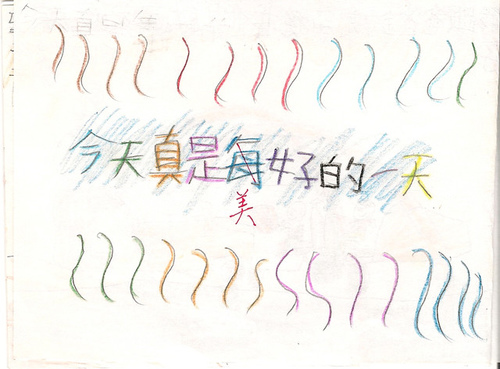 今天真是每好的一天
美